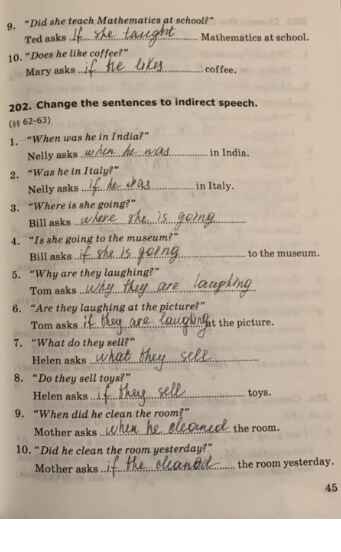 9. "Did she teach Mathematics at school?"
Ted asks if she taught Mathematics at school.
10. "Does he like coffee?"
Mary asks if he likes coffee.
202. Change the sentences to indirect speech.
(§§ 62-63)
1. "When was he in India?"
Nelly asks when he was in India.
2. "Was he in Italy?"
Nelly asks if he was in Italy.
3. "Where is she going?"
Bill asks where she is going
4. "Is she going to the museum?"
Bill asks if she is going to the museum.
5. "Why are they laughing?"
Tom asks why they are laughing
6. "Are they laughing at the picture?"
Tom asks if they are laughing at the picture.
7. "What do they sell?"
Helen asks what they sell
8. "Do they sell toys?"
Helen asks if they sell toys.
9. "When did he clean the room?"
Mother asks when he cleaned the room.
10. "Did he clean the room yesterday?"
Mother asks if he cleaned the room yesterday.
45